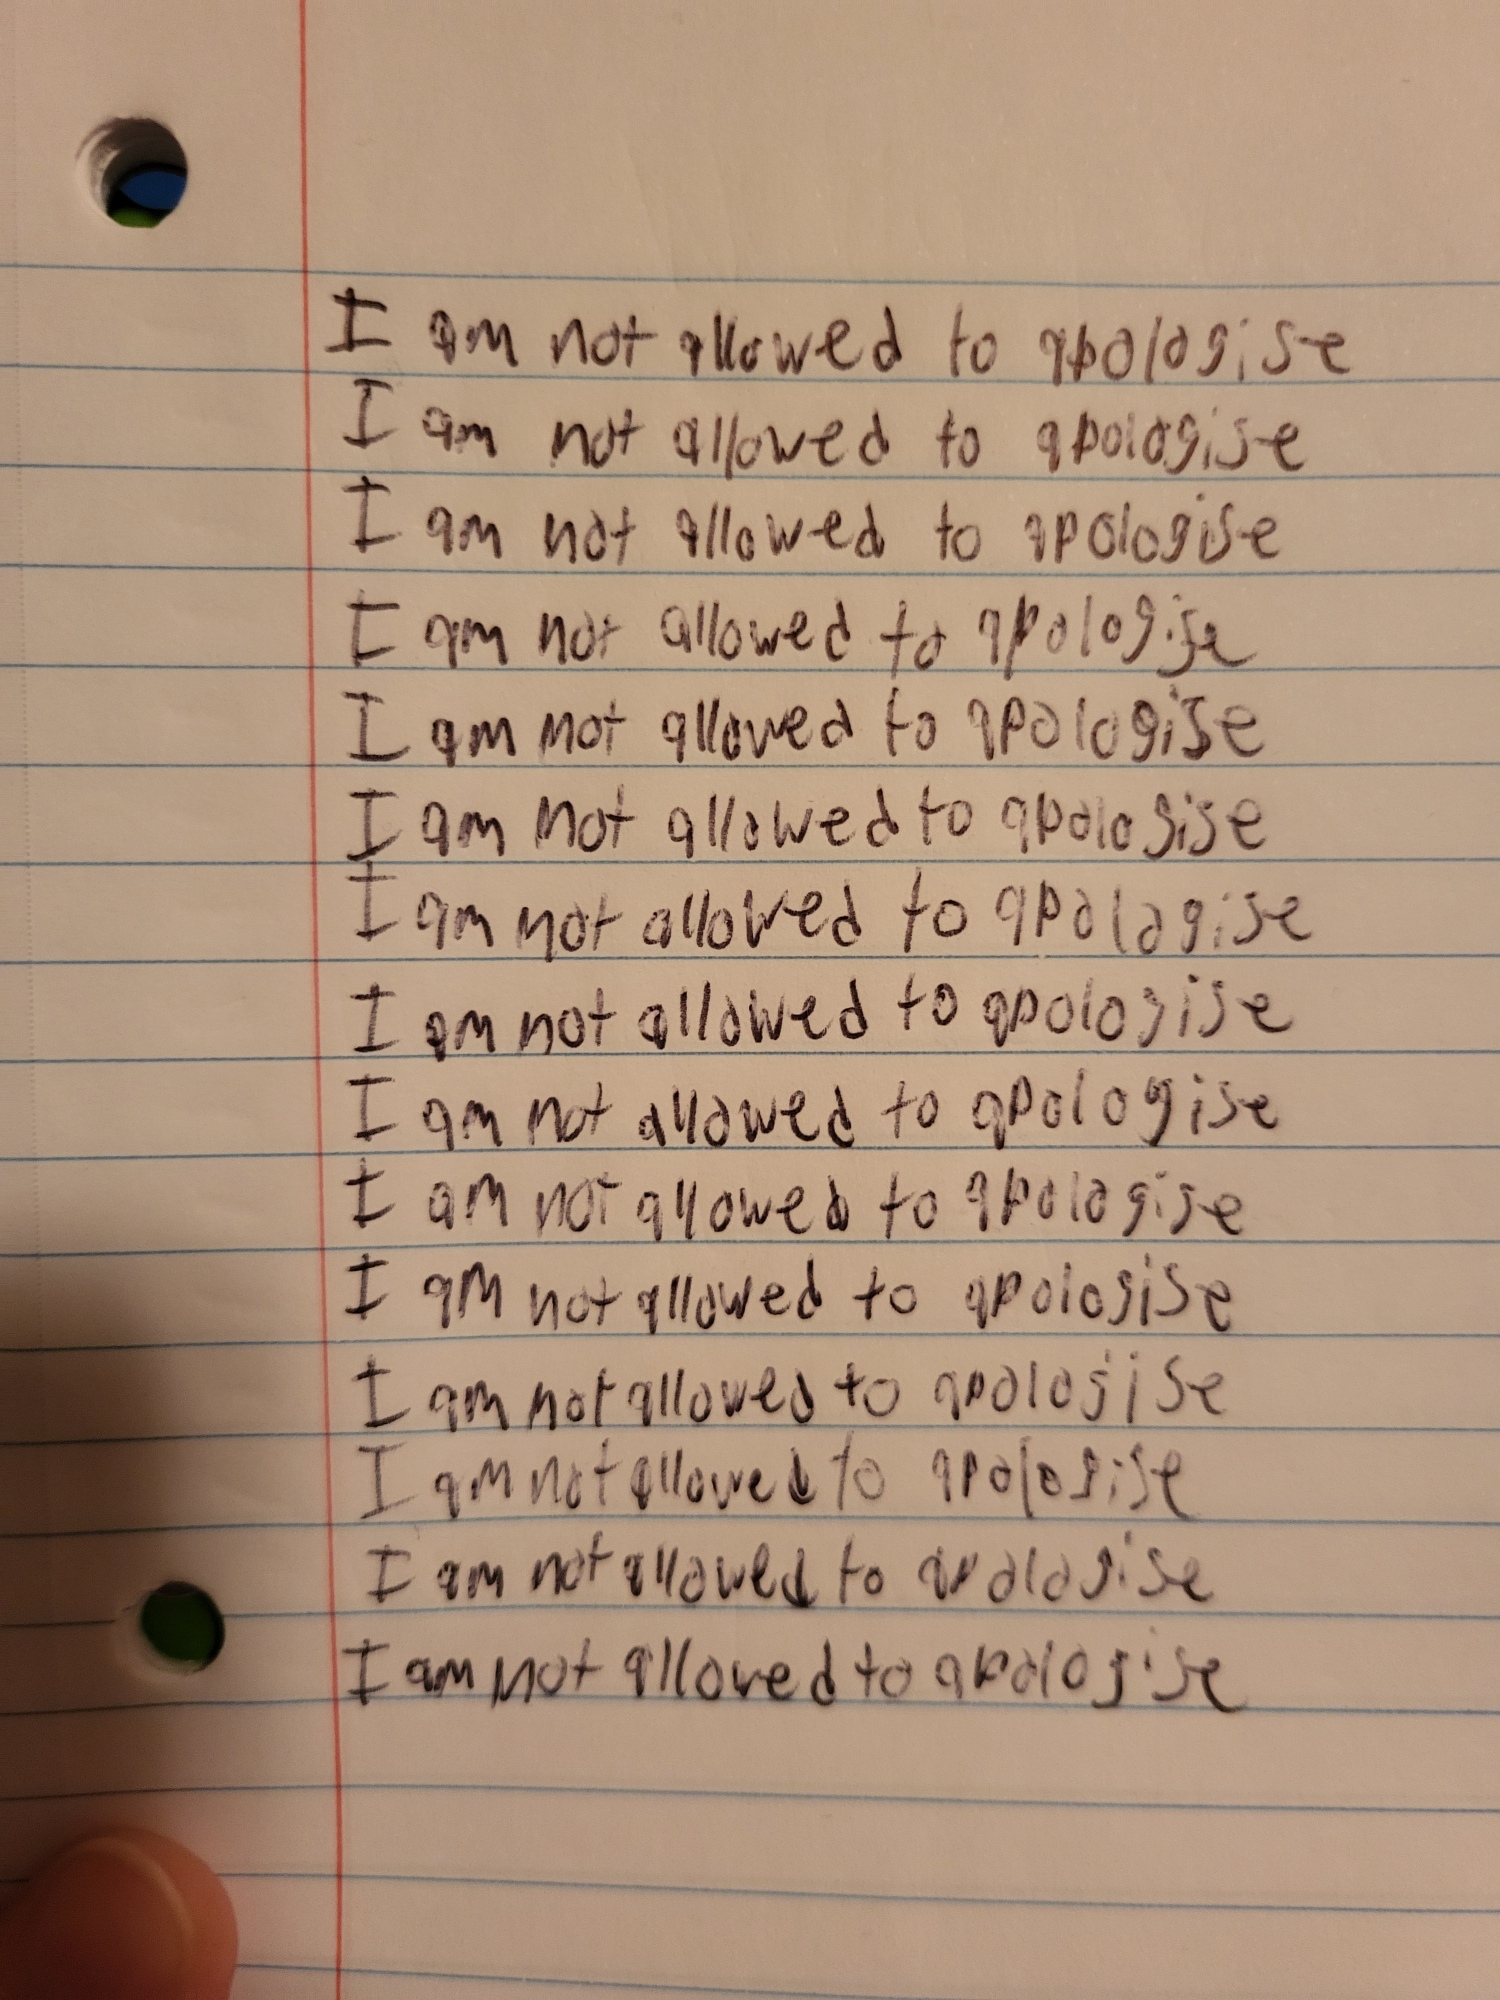 I am not allowed to apologise
I am not allowed to apologise
I am not allowed to apologise
I am not allowed to apologise
I am not allowed to apologise
I am not allowed to apologise
I am not allowed to apologise
I am not allowed to apologise
I am not allowed to apologise
I am not allowed to apologise
I am not allowed to apologise
I am not allowed to apologise
I am not allowed to apologise
I am not allowed to apologise
I am not allowed to apologise